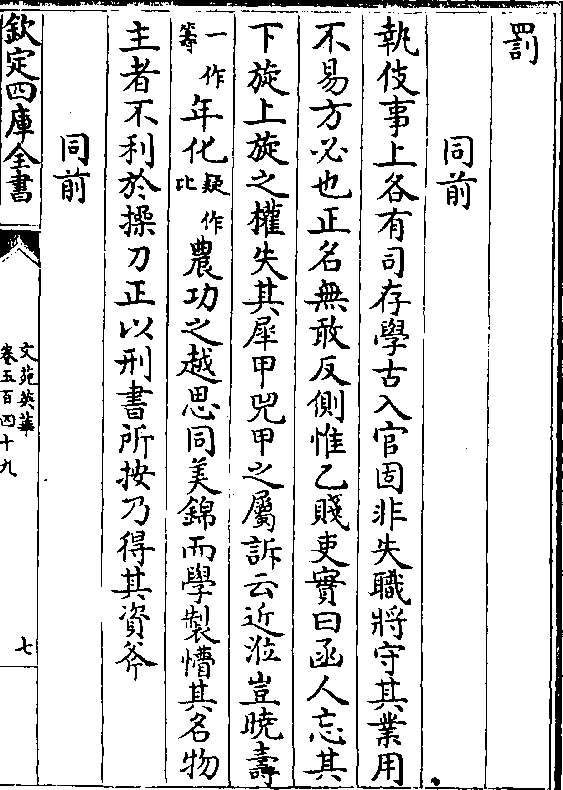 罰
同前
執伎事上各有司存學古入官固非失職將守其業用
不易方必也正名無敢反側惟乙賤吏實曰函人忘其
下旋上旋之權失其犀甲兕甲之屬訴云近涖豈曉壽
一作籌年化疑作比農功之越思同美錦而學製懵其名物
主者不利於操刀正以刑書所按乃得其資斧
同前
欽定四庫全書
文苑英華
卷五百四十九
七